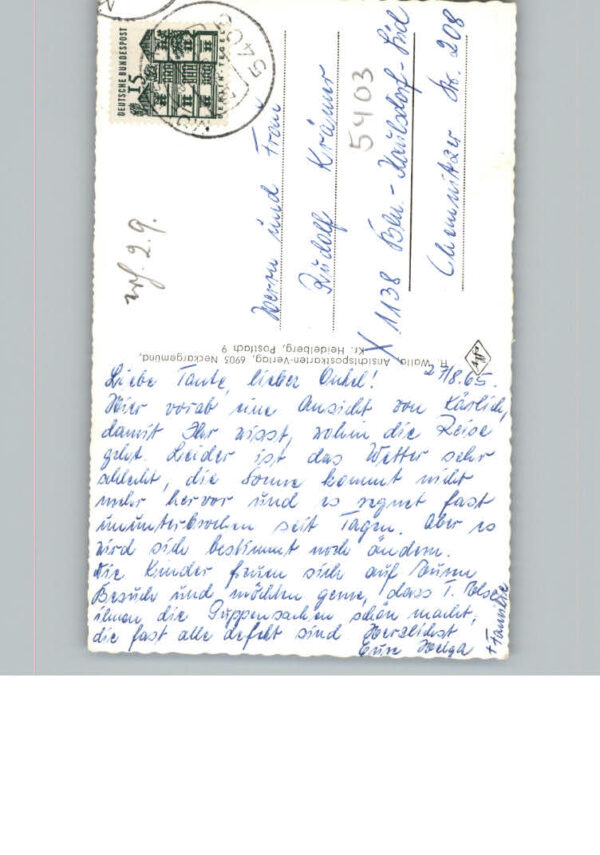 DEUTSCHE BUNDESPOST
15
BERLIN-TEGEL
5403
Herrn und Frau
Rudolf Krämer
5403
X 1138 Bln.-Kaulsdorf-Süd
Chemnitzer Str. 208
2.9.
H. Walla, Ansichtspostkarten-Verlag, 6903 Neckargemünd,
Kr. Heidelberg, Postfach 9
27/8.65.
Liebe Tante, lieber Onkel!
Hier vorab eine Ansicht von Kärlich,
damit Ihr wisst, wohin die Reise
geht. Leider ist das Wetter sehr
schlecht, die Sonne kommt nicht
mehr hervor und es regnet fast
ununterbrochen seit Tagen. Aber es
wird sich bestimmt noch ändern.
Die Kinder freuen sich auf Euren
Besuch und möchten gerne, dass T. Else
ihnen die Puppensachen schön macht,
die fast alle defekt sind Herzlichst
Eure Helga + Familie